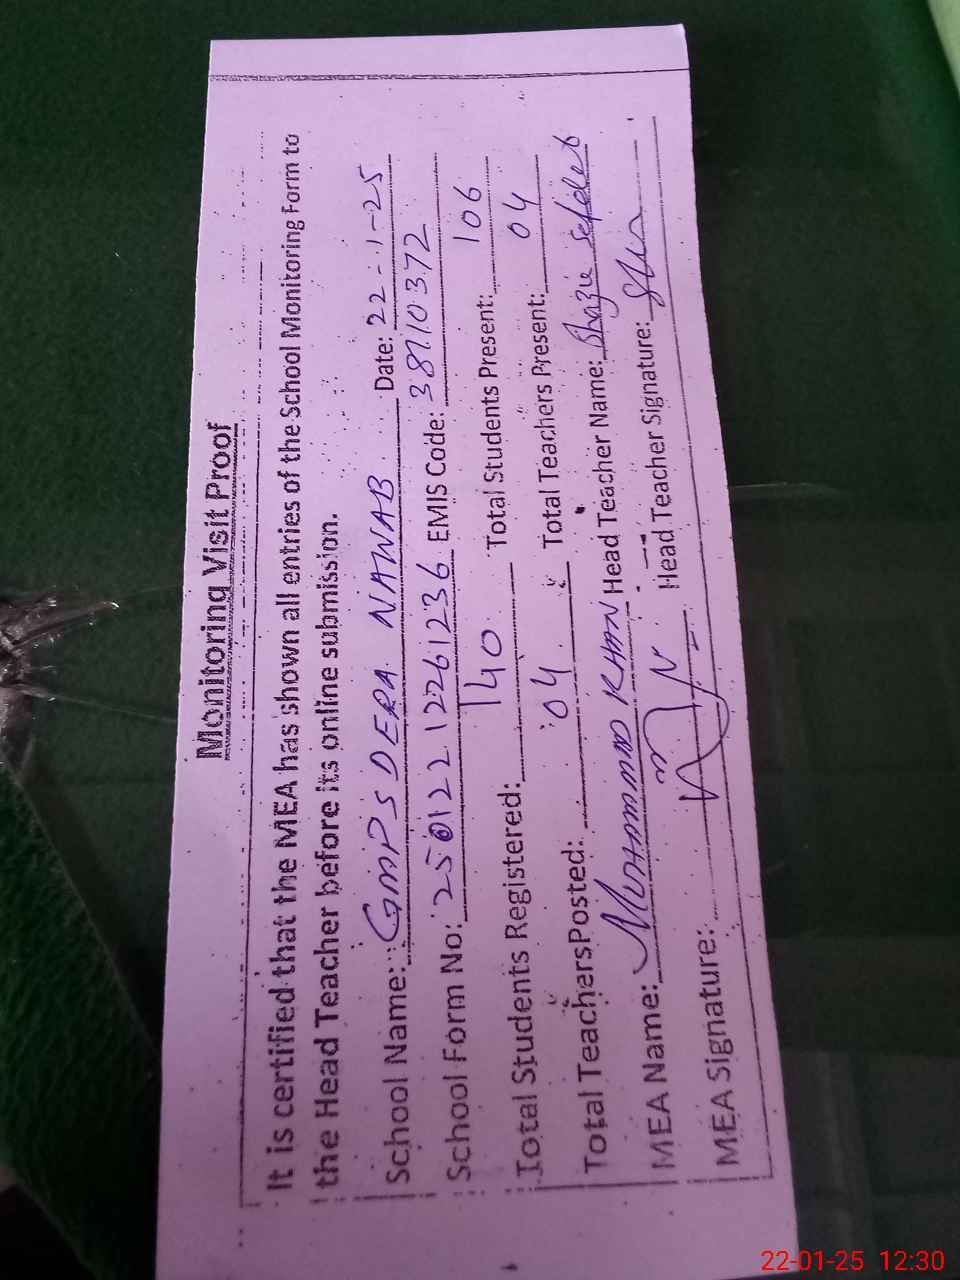 Monitoring Visit Proof
It is certified that the MEA has shown all entries of the School Monitoring Form to
the Head Teacher before its online submission.
School Name: GMPS DERA NAWAB Date: 22-1-25
School Form No: 250122 1226 1236 EMIS Code: 38710372
Total Students Registered: 140 Total Students Present: 106
Total Teachers Posted: 04 Total Teachers Present: 04
MEA Name: MUHAMMAD KHAN Head Teacher Name:
MEA Signature: Head Teacher Signature:
22-01-25 12:30